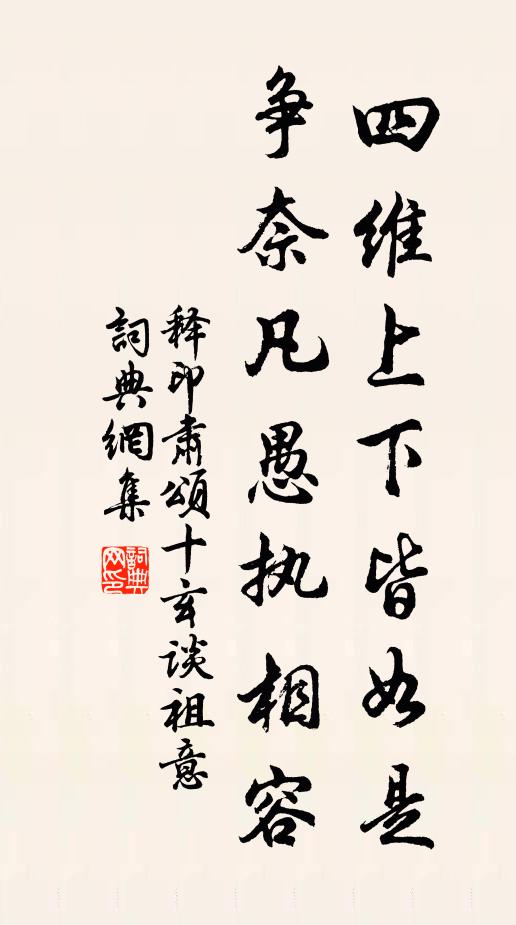 四维上下皆如是
争奈凡愚执相容
释印肃颂十玄谈祖意
詞典網集
詞典网印